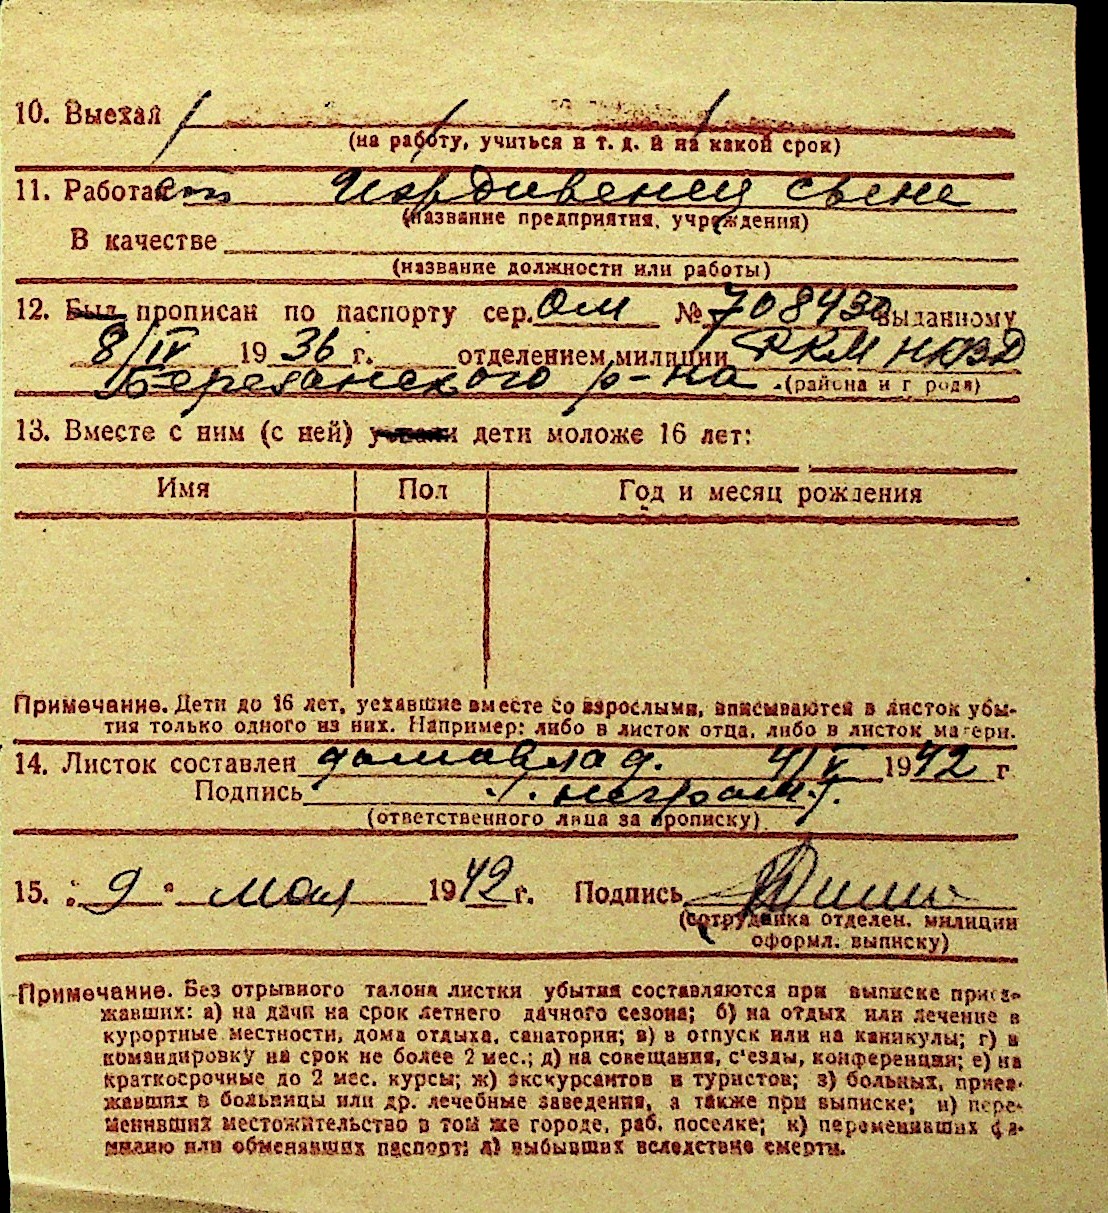 10. Выехал
(на работу, учиться и т. д. и на какой срок)
11. Работает Иждивенец сына
(название предприятия, учреждения)
В качестве
(название должности или работы)
12. Был прописан по паспорту сер. ОМ № 708430 выданному
8/IV 1936 г. отделением милиции РКМ НКВД
Березанского р-на (района и города)
13. Вместе с ним (с ней) дети моложе 16 лет:
Имя Пол Год и месяц рождения
Примечание. Дети до 16 лет, уехавшие вместе со взрослыми, вписываются в листок убы-
тия только одного из них. Например: либо в листок отца, либо в листок матери.
14. Листок составлен домовлад. 4/V 1942 г
Подпись неграм.
(ответственного лица за прописку)
15. "9" мая 1942 г. Подпись
(сотрудника отделен. милиции
оформл. выписку)
Примечание. Без отрывного талона листки убытия составляются при выписке приез-
жавших: а) на дачи на срок летнего дачного сезона; б) на отдых или лечение в
курортные местности, дома отдыха, санатории; в) в отпуск или на каникулы; г) в
командировку на срок не более 2 мес.; д) на совещания, с'езды, конференции; е) на
краткосрочные до 2 мес. курсы; ж) экскурсантов и туристов; з) больных, приез-
жавших в больницы или др. лечебные заведения, а также при выписке; и) пере-
менивших местожительство в том же городе, раб. поселке; к) переменивших фа-
милию или обменявших паспорт; л) выбывших вследствие смерти.